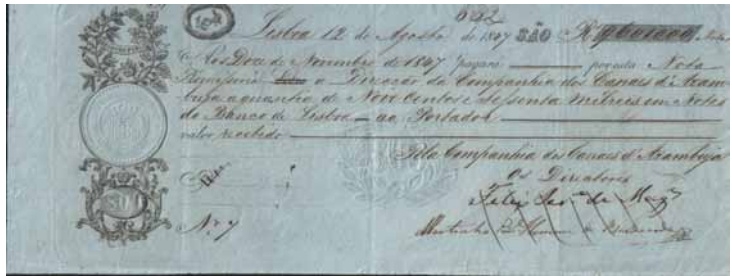 Lisboa 12 de Agosto de 1847 SÃO Rs 960$000
Aos Doze de Novembro de 1847 pagará por esta Nota
Promissoria a Direcção da Companhia dos Canaes d'Azam
buja a quantia de Nove Centos e Sessenta mil reis em Notas
do Banco de Lisboa ao Portador
valor recebido
Pela Companhia dos Canaes d'Azambuja
Os Directores
Nº 7